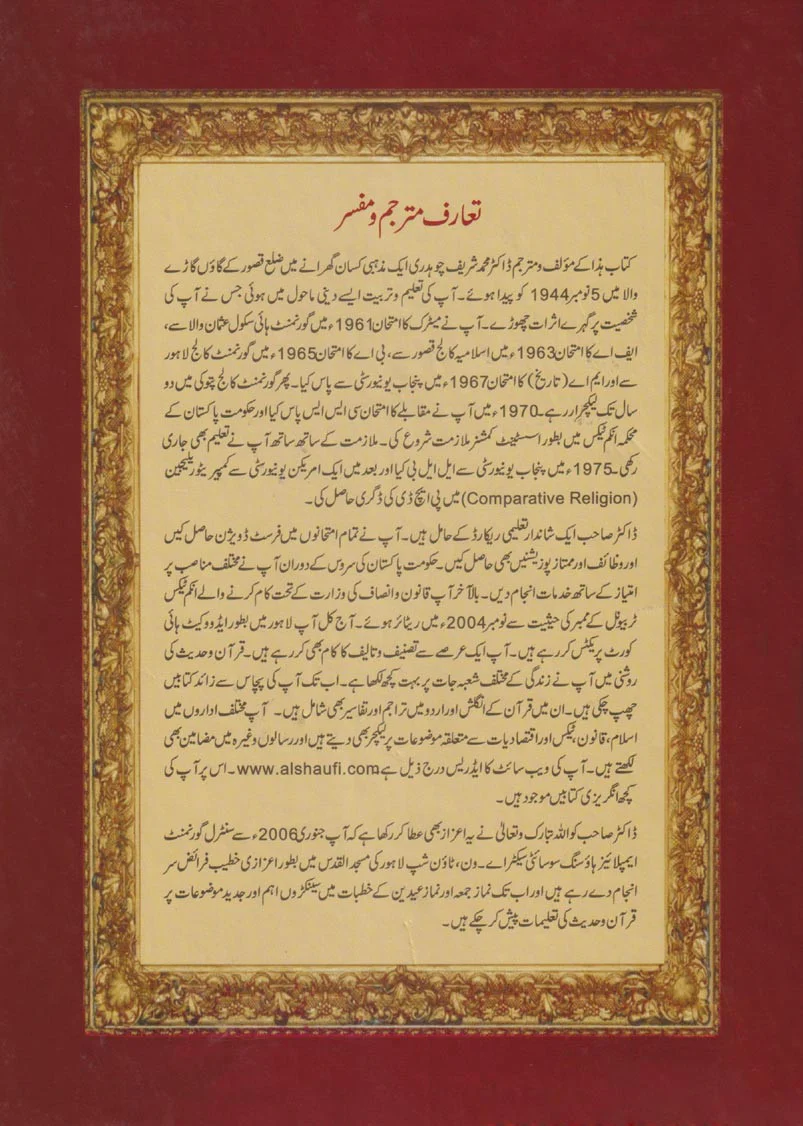 تعارف مترجم و مفسر
کتاب ہذا کے مؤلف و مترجم ڈاکٹر محمد شریف چوہدری ایک مذہبی کسان گھرانے میں ضلع قصور کے گاؤں گاڑے
والا میں 5 نومبر 1944 کو پیدا ہوئے۔ آپ کی تعلیم و تربیت ایسے دینی ماحول میں ہوئی جس نے آپ کی
شخصیت پر گہرے اثرات چھوڑے۔ آپ نے میٹرک کا امتحان 1961ء میں گورنمنٹ ہائی سکول عثمان والا سے،
ایف اے کا امتحان 1963ء میں اسلامیہ کالج قصور سے، بی اے کا امتحان 1965ء میں گورنمنٹ کالج لاہور
سے اور ایم اے (تاریخ) کا امتحان 1967ء میں پنجاب یونیورسٹی سے پاس کیا۔ پھر گورنمنٹ کالج پتوکی میں دو
سال تک لیکچرار رہے۔ 1970ء میں آپ نے مقابلے کا امتحان سی ایس ایس پاس کیا اور حکومت پاکستان کے
محکمہ انکم ٹیکس میں بطور اسسٹینٹ کمشنر ملازمت شروع کی۔ ملازمت کے ساتھ ساتھ آپ نے تعلیم بھی جاری
رکھی۔ 1975ء میں پنجاب یونیورسٹی سے ایل ایل بی کیا اور بعد میں ایک امریکن یونیورسٹی سے کمپیریٹو ریلیجین
(Comparative Religion) میں پی ایچ ڈی کی ڈگری حاصل کی۔
ڈاکٹر صاحب ایک شاندار تعلیمی ریکارڈ کے حامل ہیں۔ آپ نے تمام امتحانوں میں فرسٹ ڈویژن حاصل کیں
اور وظائف اور ممتاز پوزیشنیں بھی حاصل کیں۔ حکومت پاکستان کی سروس کے دوران آپ نے مختلف مناصب پر
امتیاز کے ساتھ خدمات انجام دیں۔ بالآخر آپ قانون و انصاف کی وزارت کے تحت کام کرنے والے انکم ٹیکس
ٹربیونل کے ممبر کی حیثیت سے نومبر 2004ء میں ریٹائر ہوئے۔ آج کل آپ لاہور میں بطور ایڈووکیٹ ہائی
کورٹ پریکٹس کر رہے ہیں۔ آپ ایک عرصے سے تصنیف و تالیف کا کام بھی کر رہے ہیں۔ قرآن و حدیث کی
روشنی میں آپ نے زندگی کے مختلف شعبہ جات پر بہت کچھ لکھا ہے۔ اب تک آپ کی پچاس سے زائد کتابیں
چھپ چکی ہیں۔ ان میں قرآن کے انگلش اور اردو میں تراجم اور تفاسیر بھی شامل ہیں۔ آپ مختلف اداروں میں
اسلام، قانون، ٹیکس اور اقتصادیات سے متعلقہ موضوعات پر لیکچر بھی دیتے ہیں اور رسالوں وغیرہ میں مضامین بھی
لکھتے ہیں۔ آپ کی ویب سائٹ کا ایڈریس درج ذیل ہے www.alshaufi.com۔ اس پر آپ کی
کچھ انگریزی کتابیں موجود ہیں۔
ڈاکٹر صاحب کو اللہ تبارک و تعالیٰ نے یہ اعزاز بھی عطا کر رکھا ہے کہ آپ جنوری 2006ء سے سنٹرل گورنمنٹ
ایمپلائیز ہاؤسنگ سوسائٹی سیکٹر اے۔ ون، ٹاؤن شپ لاہور کی مسجد القدس میں بطور اعزازی خطیب فرائض سر
انجام دے رہے ہیں اور اب تک نماز جمعہ اور نماز عیدین کے خطبات میں سینکڑوں اہم اور جدید موضوعات پر
قرآن و حدیث کی تعلیمات پیش کر چکے ہیں۔